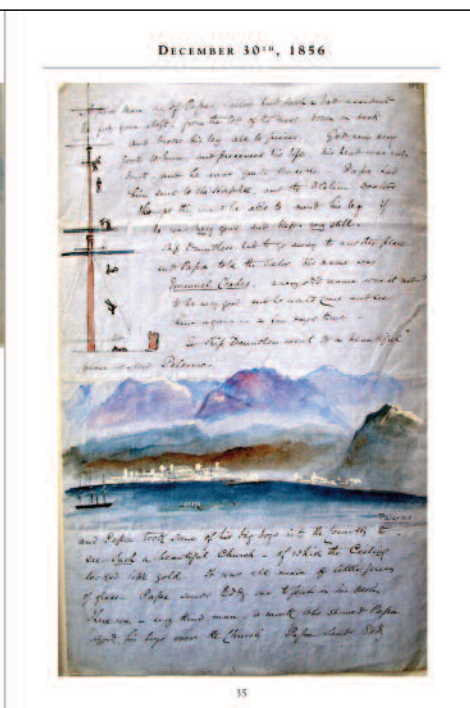 DECEMBER 30TH, 1856
of Papa's Sailors had such a bad accident
he fell from aloft, from the top of the mast down on deck
and broke his leg all to pieces. God was very
good to him and preserved his life his head was not
hurt, and he was quite sensible. Papa had
him sent to the Hospital, and the Italian Doctors
thought they would be able to mend his leg if
he was very good and kept very still.
Ship Dauntless had to go away to another place
and Papa told the Sailor his name was
Emanuel Cooles, a very odd name was it not?
to be very good and he would come and see
him again in a few days time -
So Ship Dauntless went to a beautiful
place called Palermo.
Palermo
and Papa took some of his big boys into the Country to
see Such a beautiful Church - of which the Ceiling
looked like gold. It was all made of little pieces
of glass. Papa sends Eddy one to put in his desk.
There was a very kind man - a monk who showed Papa
and his boys over the Church Papa sends Eddy
35